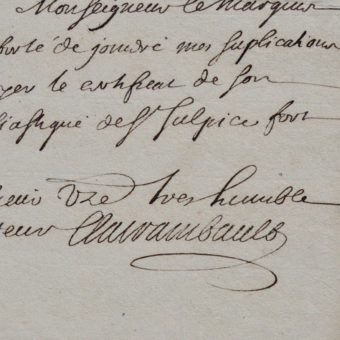 Monseigneur le Marquis
de joindre mes suplications
le certificat de son
de St Sulpice fort
Vre tres humble
Clairambault